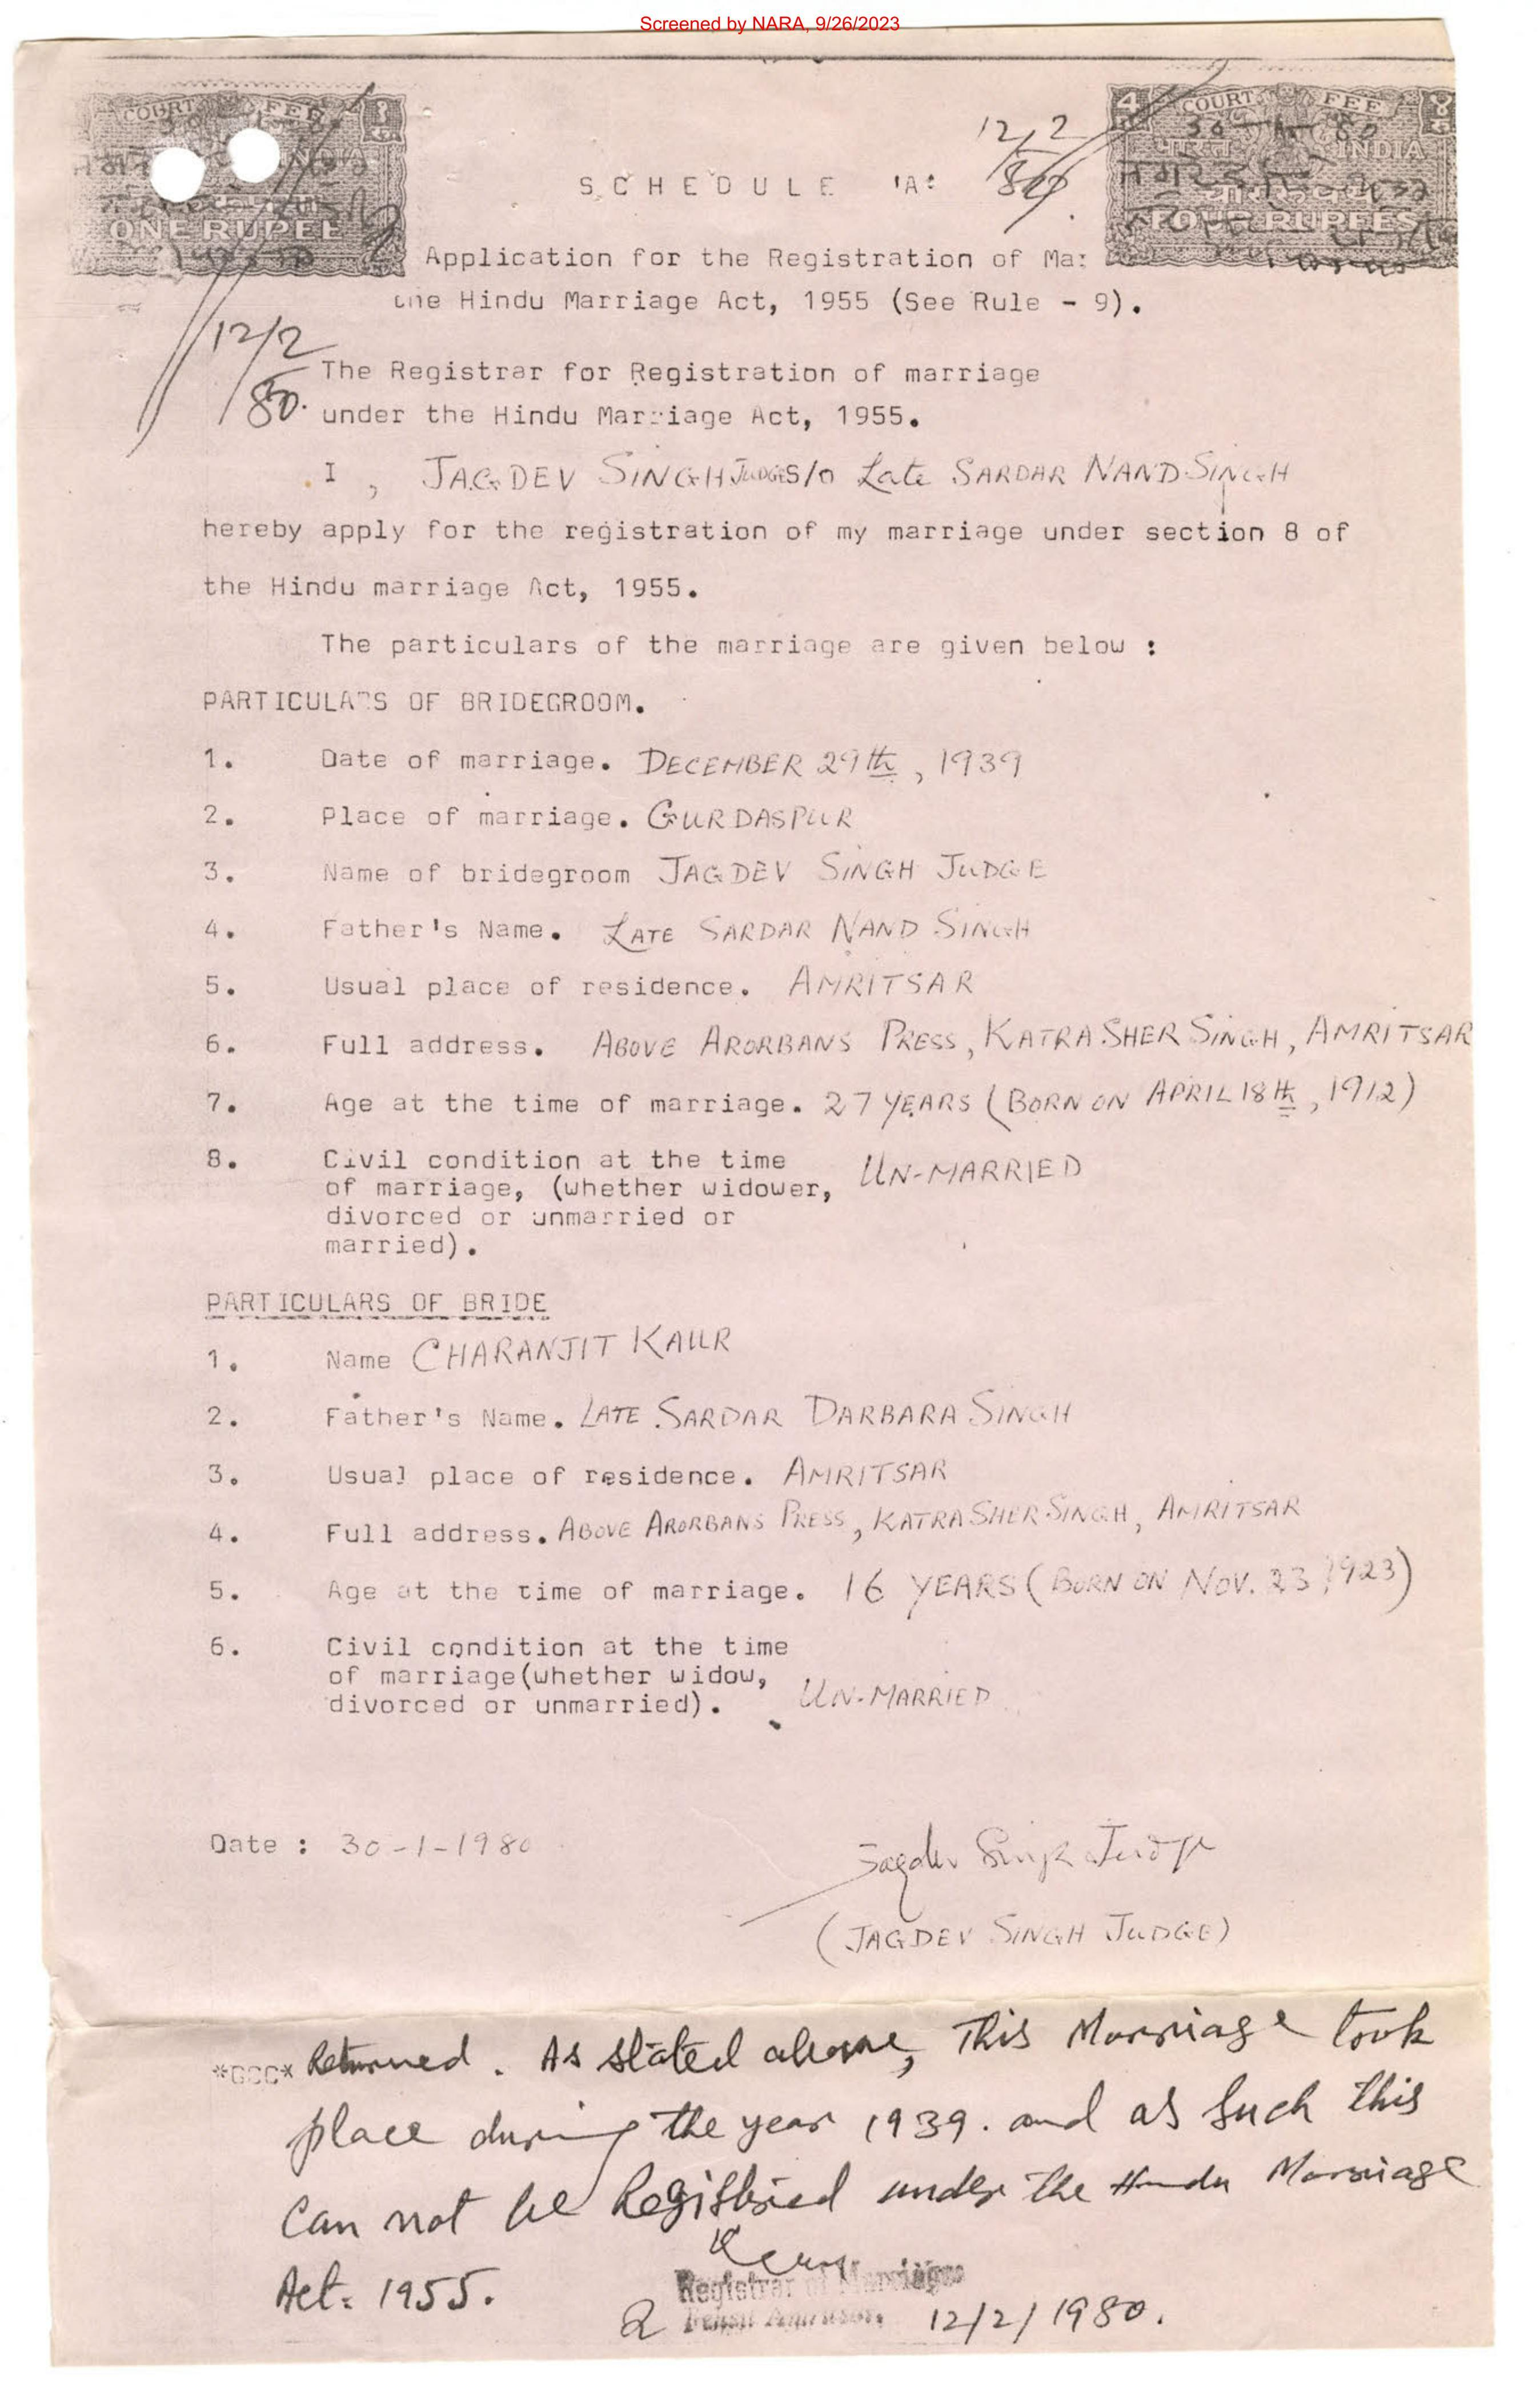 Screened by NARA, 9/26/2023
COURT FEE
INDIA
ONE RUPEE
COURT FEE
भारत INDIA
चार रुपये
FOUR RUPEES
12/2
80
SCHEDULE 'A'
Application for the Registration of Mar
the Hindu Marriage Act, 1955 (See Rule - 9).
12/2
80.
The Registrar for Registration of marriage
under the Hindu Marriage Act, 1955.
I, JAGDEV SINGH JUDGE S/O Late SARDAR NAND SINGH
hereby apply for the registration of my marriage under section 8 of
the Hindu marriage Act, 1955.
The particulars of the marriage are given below :
PARTICULARS OF BRIDEGROOM.
1. Date of marriage. DECEMBER 29th, 1939
2. Place of marriage. GURDASPUR
3. Name of bridegroom JAGDEV SINGH JUDGE
4. Father's Name. LATE SARDAR NAND SINGH
5. Usual place of residence. AMRITSAR
6. Full address. ABOVE ARORBANS PRESS, KATRA SHER SINGH, AMRITSAR
7. Age at the time of marriage. 27 YEARS (BORN ON APRIL 18th, 1912)
8. Civil condition at the time
of marriage, (whether widower, UN-MARRIED
divorced or unmarried or
married).
PARTICULARS OF BRIDE
1. Name CHARANJIT KAUR
2. Father's Name. LATE SARDAR DARBARA SINGH
3. Usual place of residence. AMRITSAR
4. Full address. ABOVE ARORBANS PRESS, KATRA SHER SINGH, AMRITSAR
5. Age at the time of marriage. 16 YEARS (BORN ON NOV. 23, 1923)
6. Civil condition at the time
of marriage(whether widow,
divorced or unmarried). UN-MARRIED
Date : 30-1-1980
Jagdev Singh Judge
(JAGDEV SINGH JUDGE)
*GCC* Returned. As stated above, This Marriage took
place during the year 1939. and as such this
Can not be Registered under the Hindu Marriage
Act. 1955.
Registrar of Marriages
12/2/1980.